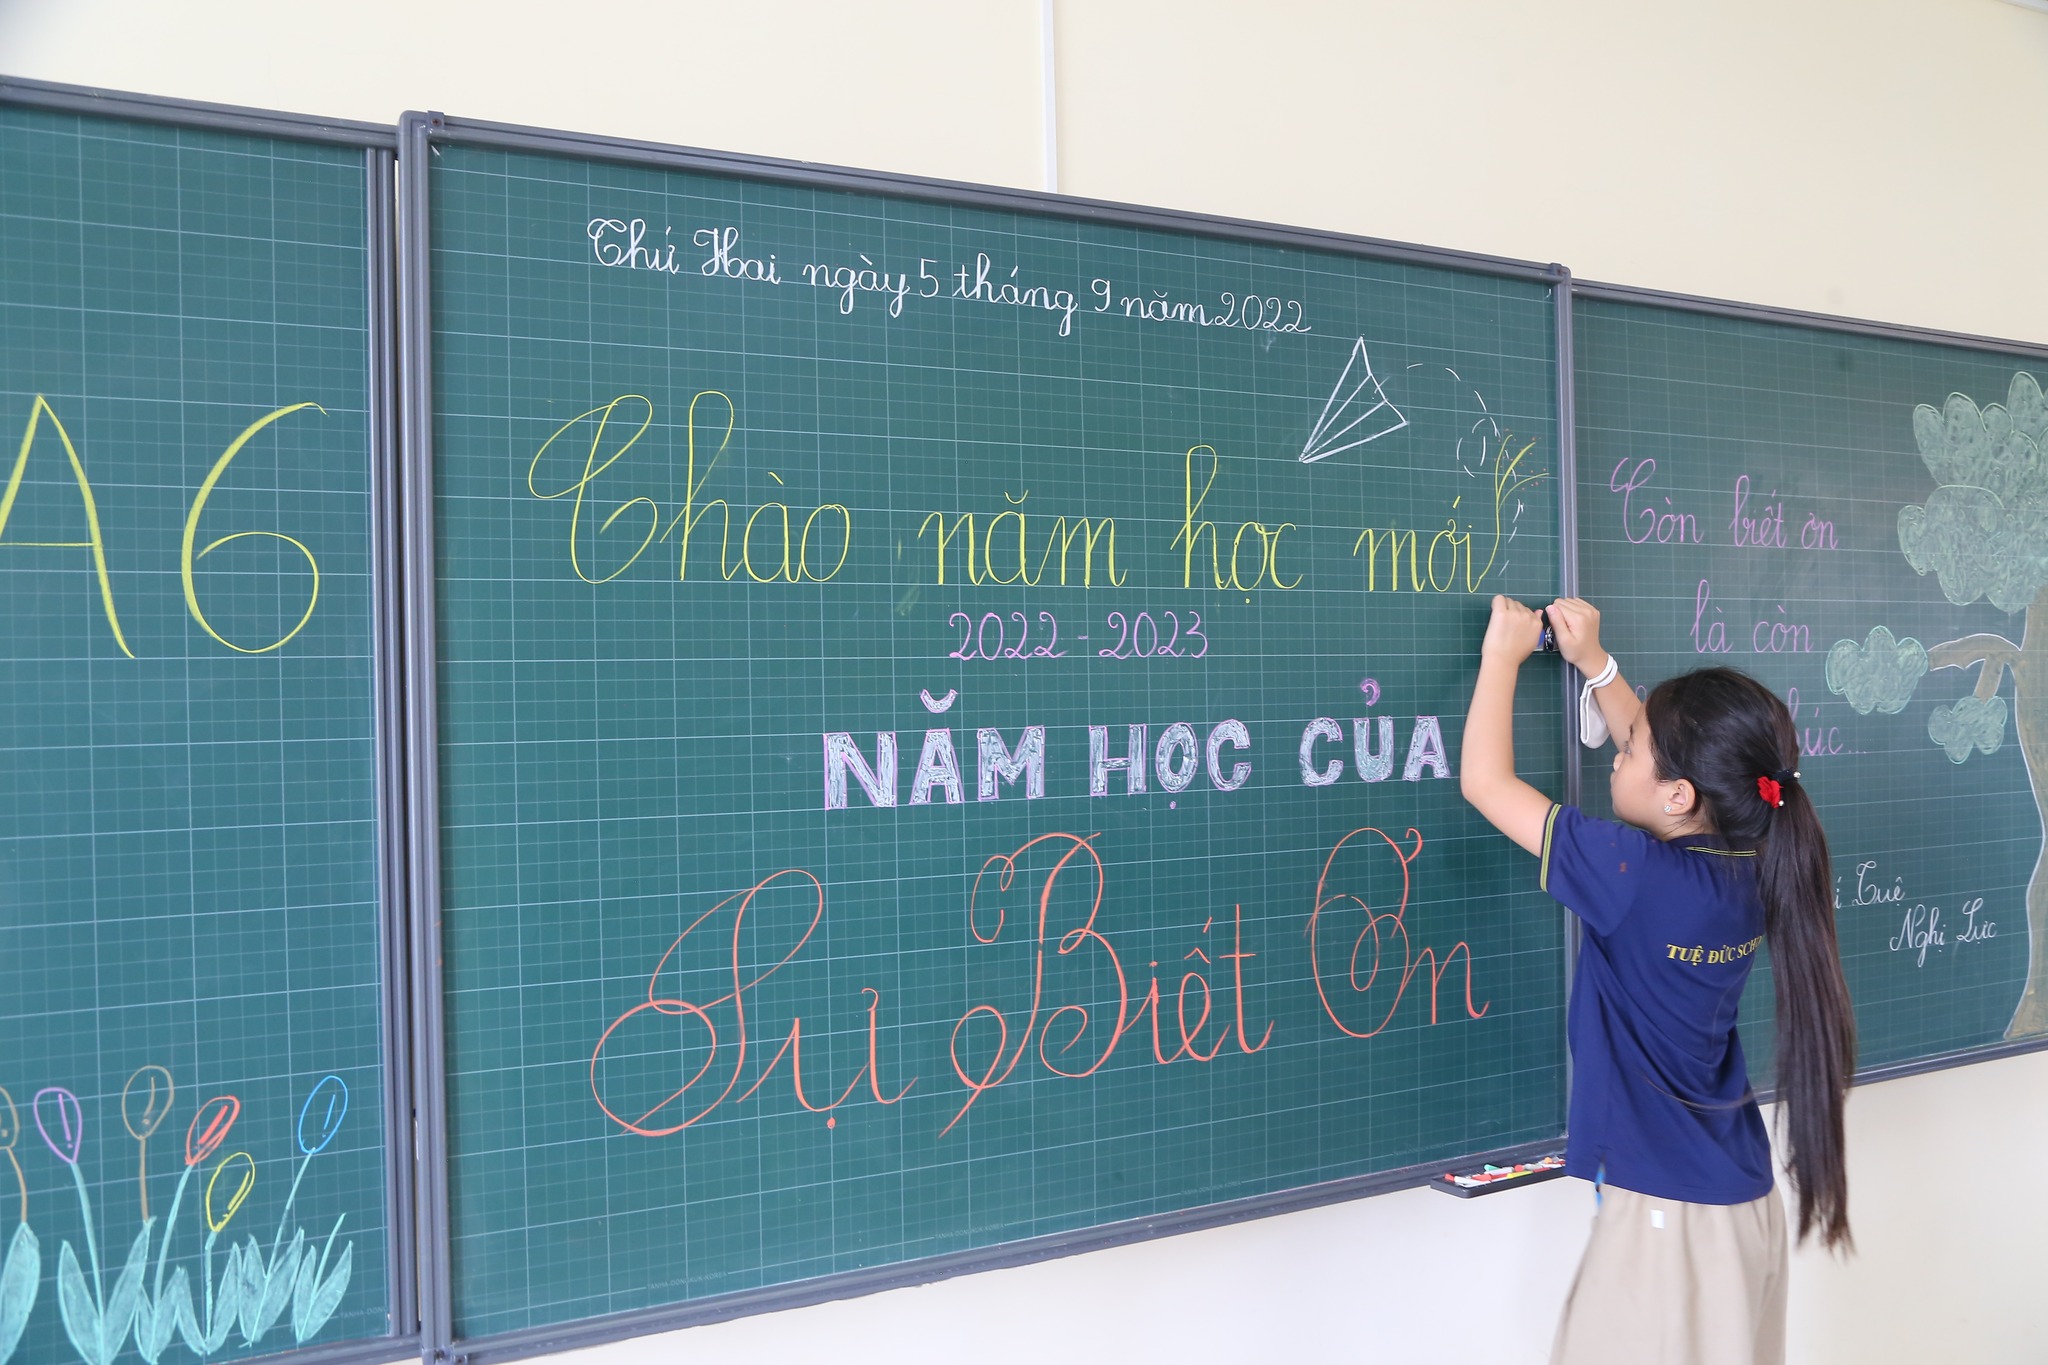 A6
Thứ Hai ngày 5 tháng 9 năm 2022
Chào năm học mới
2022 - 2023
NĂM HỌC CỦA
Sự Biết Ơn
Còn biết ơn
là còn
Tuệ
Nghị Lực
TUỆ ĐỨC